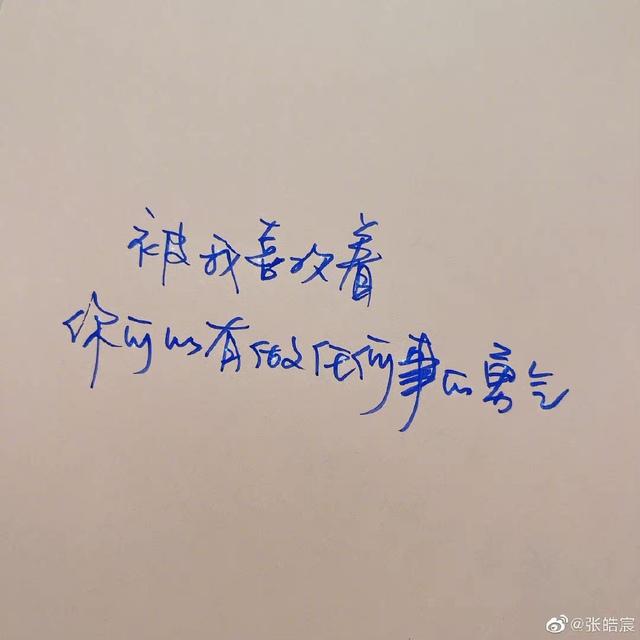 被我喜欢着
你可以有做任何事的勇气
@张皓宸